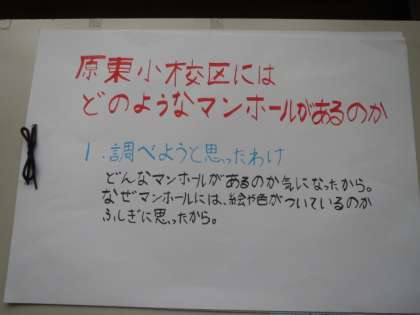 原東小校区には
どのようなマンホールがあるのか
1.調べようと思ったわけ
どんなマンホールがあるのか気になったから。
なぜマンホールには、絵や色がついているのか
ふしぎに思ったから。